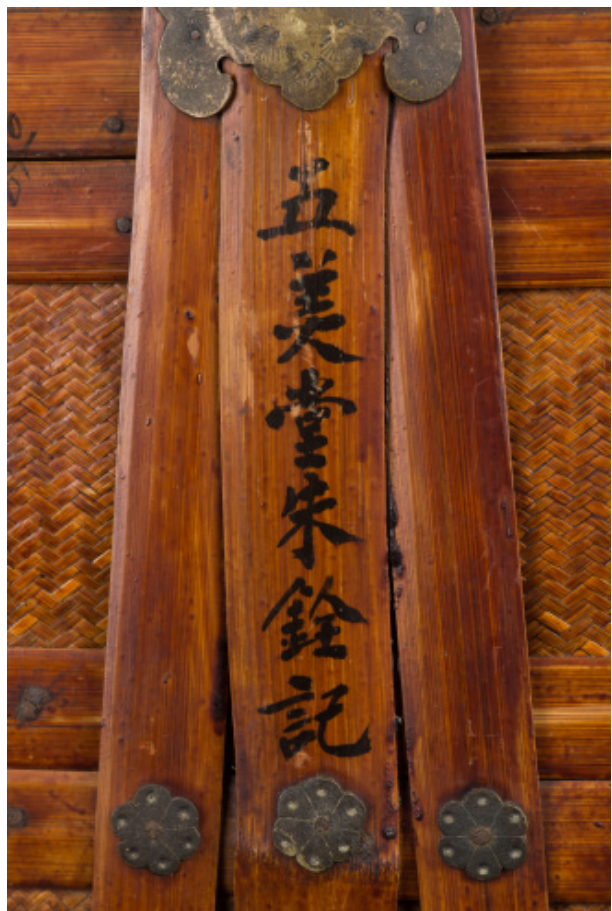 五美堂朱銓記